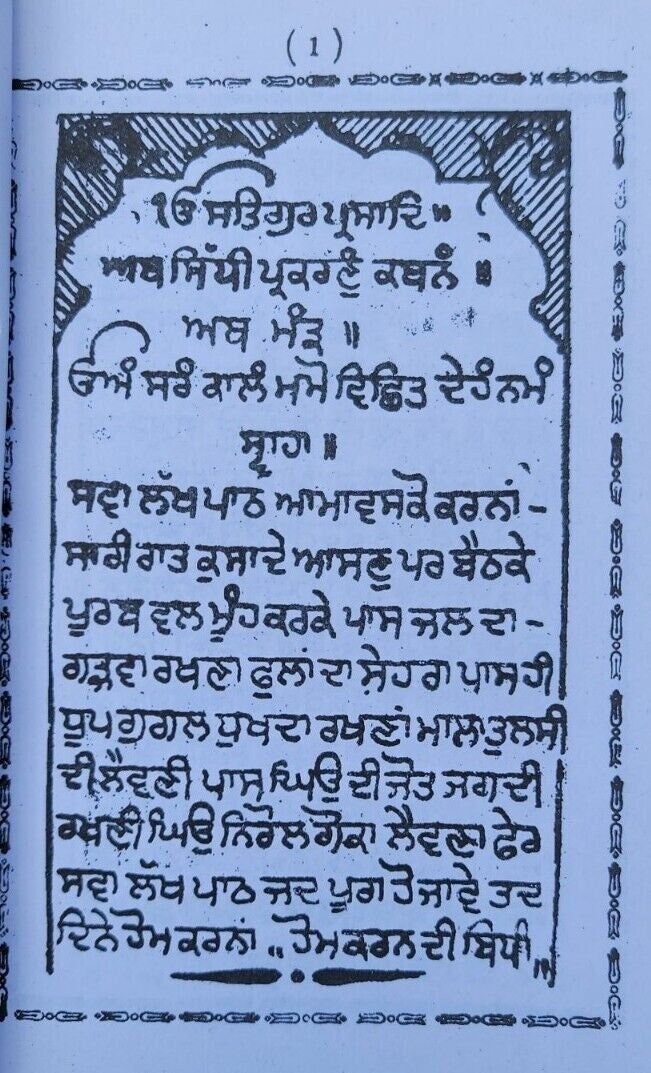 ( 1 )
ੴ ਸਤਿਗੁਰ ਪ੍ਰਸਾਦਿ ॥
ਅਥ ਸਿੱਧੀ ਪ੍ਰਕਰਣੰ ਕਥਨੰ ॥
ਅਥ ਮੰਤ੍ਰ ॥
ਓਅੰ ਸਰੰ ਕਾਲੰ ਮਮੋ ਦੇਹੰ ਨਮੰ
ਸ੍ਵਾਹਾ ॥
ਸਵਾ ਲੱਖ ਪਾਠ ਆਮਾਵਸ ਕੋ ਕਰਨਾਂ -
ਸਾਰੀ ਰਾਤ ਕੁਸਾ ਦੇ ਆਸਣੁ ਪਰ ਬੈਠਕੇ
ਪੂਰਬ ਵਲ ਮੂੰਹ ਕਰਕੇ ਪਾਸ ਜਲ ਦਾ -
ਗੜਵਾ ਰਖਣਾ ਫੁਲਾਂ ਦਾ ਸੇਹਰਾ ਪਾਸ ਹੀ
ਧੂਪ ਗੁਗਲ ਧੁਖਦਾ ਰਖਣਾਂ ਮਾਲਾ ਤੁਲਸੀ
ਦੀ ਲੈਵਣੀ ਪਾਸ ਘਿਉ ਦੀ ਜੋਤ ਜਗਦੀ
ਰਖਣੀ ਘਿਉ ਨਿਰੋਲ ਗੋਕਾ ਲੈਵਣਾ ਫੇਰ
ਸਵਾ ਲੱਖ ਪਾਠ ਜਦ ਪੂਰਾ ਹੋ ਜਾਵੇ ਤਦ
ਦਿਨੇ ਹੋਮ ਕਰਨਾਂ ॥ ਹੋਮ ਕਰਨ ਦੀ ਬਿਧੀ ॥